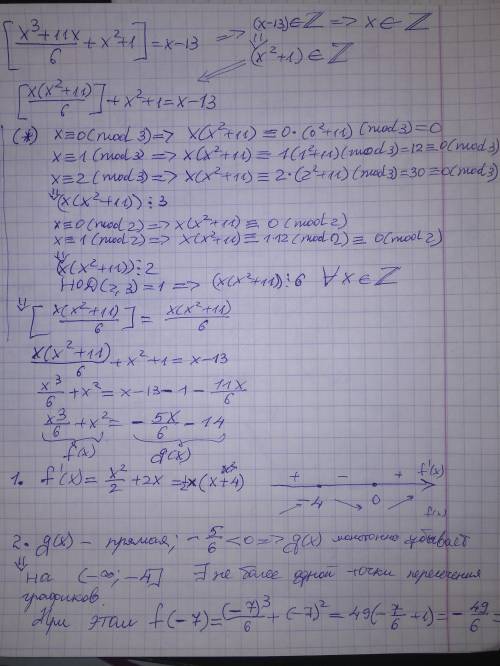 [x³+11x/6 + x²+1] = x-13 => (x-13)∈ℤ => x∈ℤ
(x²+1)∈ℤ
[x(x²+11)/6] + x²+1 = x-13
(*) x≡0(mod 3) => x(x²+11) ≡ 0·(0²+11)(mod 3)=0
x≡1(mod 3) => x(x²+11) ≡ 1(1²+11)(mod 3)=12≡0(mod 3)
x≡2(mod 3) => x(x²+11) ≡ 2·(2²+11)(mod 3)=30≡0(mod 3)
(x(x²+11))⋮3
x≡0(mod 2) => x(x²+11) ≡ 0(mod 2)
x≡1(mod 2) => x(x²+11) ≡ 1·12(mod 2) ≡ 0(mod 2)
(x(x²+11))⋮2
НОД(2,3)=1 => (x(x²+11))⋮6 ∀x∈ℤ
=> [x(x²+11)/6] = x(x²+11)/6
x(x²+11)/6 + x²+1 = x-13
x³/6 + x² = x-13-1-11x/6
x³/6 + x² = -5x/6 - 14
f(x) g(x)
1. f'(x) = x²/2 + 2x = ½x(x+4)
+ - + f'(x)
-4 0 f(x)
2. g(x) - прямая; -5/6<0 => g(x) монотонно убывает
=> на (-∞; -4] ∃ не более одной точки пересечения
графиков.
При этом f(-7) = (-7)³/6 + (-7)² = 49(-7/6+1) = -49/6 =